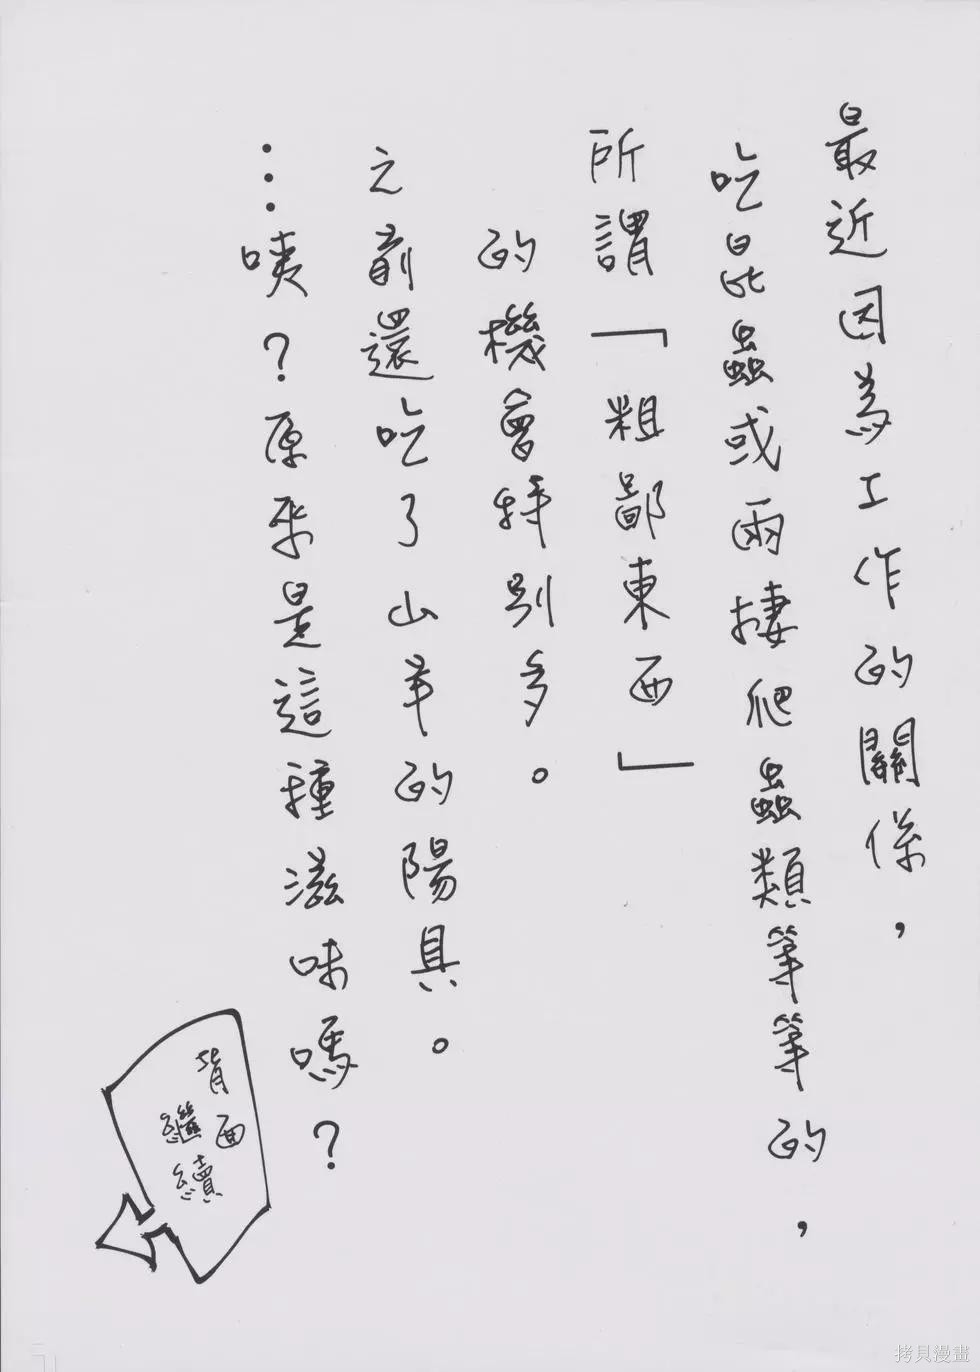 最近因為工作的關係，
吃昆蟲或兩棲爬蟲類等等的，
所謂「粗鄙東西」
的機會特別多。
之前還吃了山羊的陽具。
…咦？原來是這種滋味嗎？
背面
繼續
拷貝漫畫